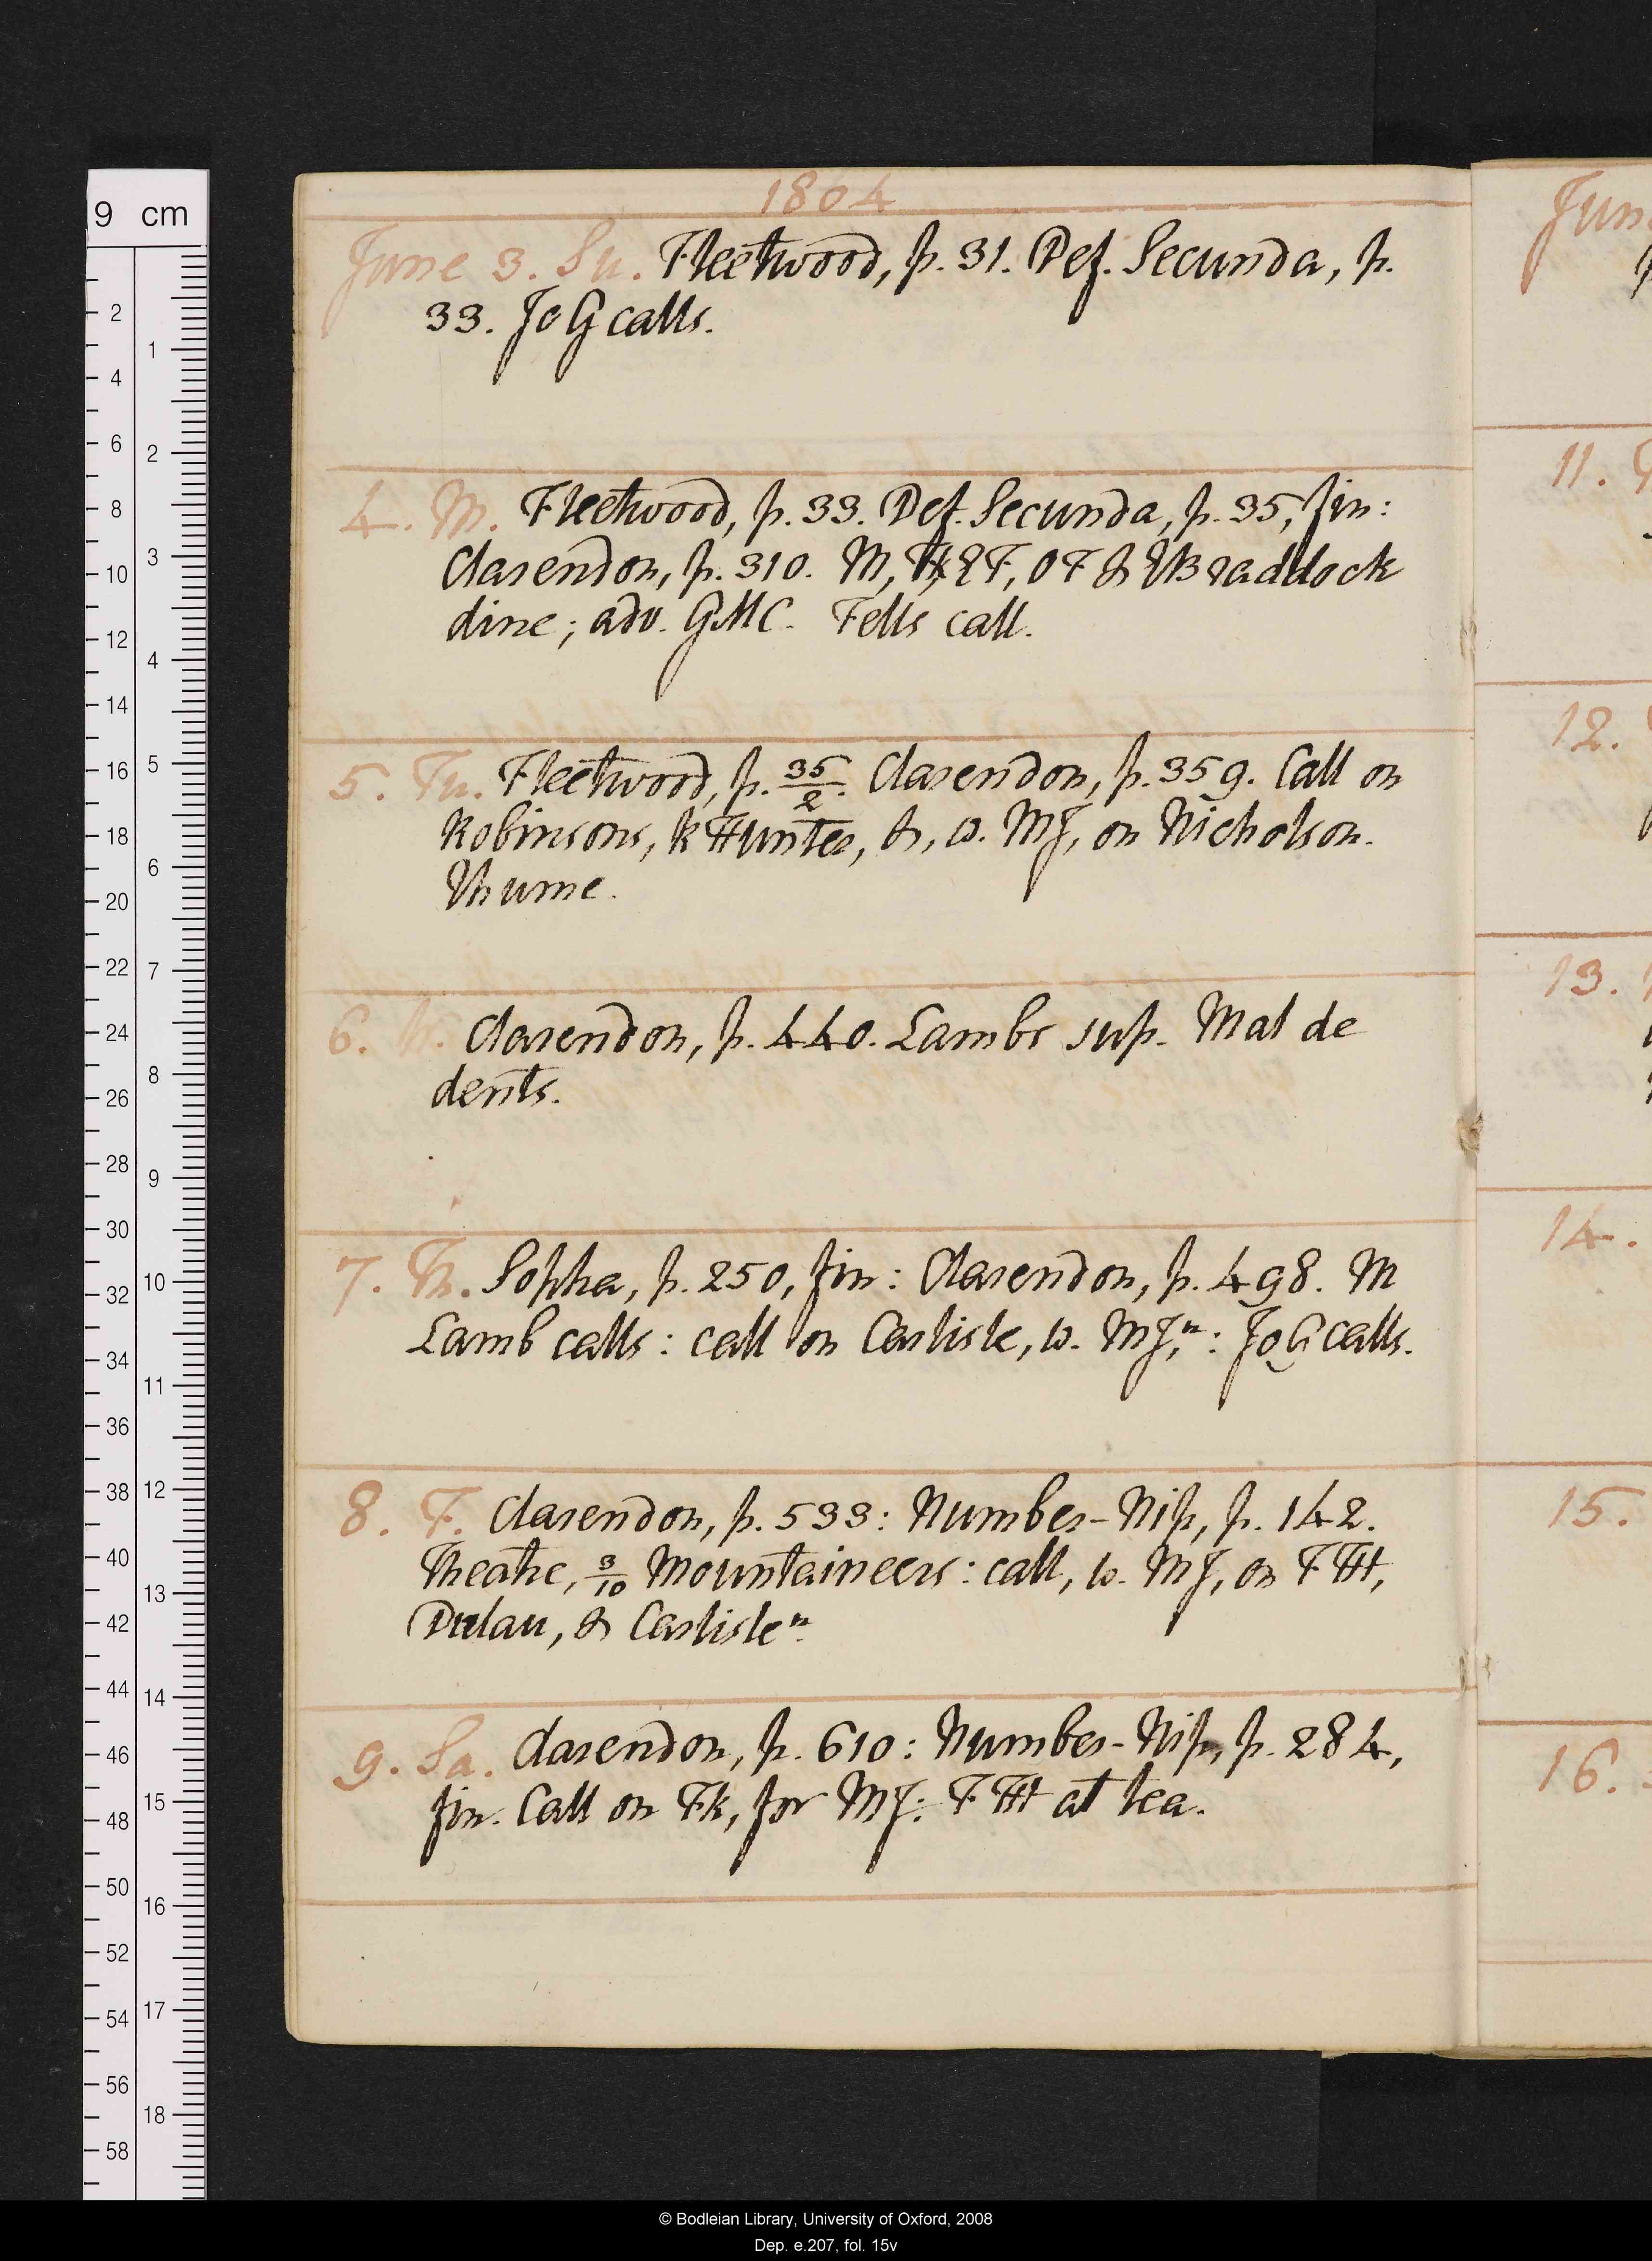 9 cm
1804
June 3. Su. Fleetwood, p. 31. Def. Secunda, p.
33. JoG calls.
4. M. Fleetwood, p. 33. Def. Secunda, p. 35, fin:
Clarendon, p. 310. M, OF & Braddock
dine; adv. GMC. Fells call.
5. Tu. Fleetwood, p. 35/2. Clarendon, p. 359. Call on
Robinsons, k Hunter, &, w. MJ, on Nicholson.
Rhume.
6. W. Clarendon, p. 440. Lambs sup. Mal de
dents.
7. Th. Sopha, p. 250, fin: Clarendon, p. 498. M
Lamb calls: call on Carlisle, w. MJ, n: JoG calls.
8. F. Clarendon, p. 533: Number-Nip, p. 142.
Theatre, 3/10 Mountaineers: call, w. MJ, on FTH,
Dulau, & Carlisle n.
9. Sa. Clarendon, p. 610: Number-Nip, p. 284,
fin. Call on Fk, for MJ: FTH at tea.
June
11.
12.
13.
14.
15.
16.
© Bodleian Library, University of Oxford, 2008
Dep. e.207, fol. 15v